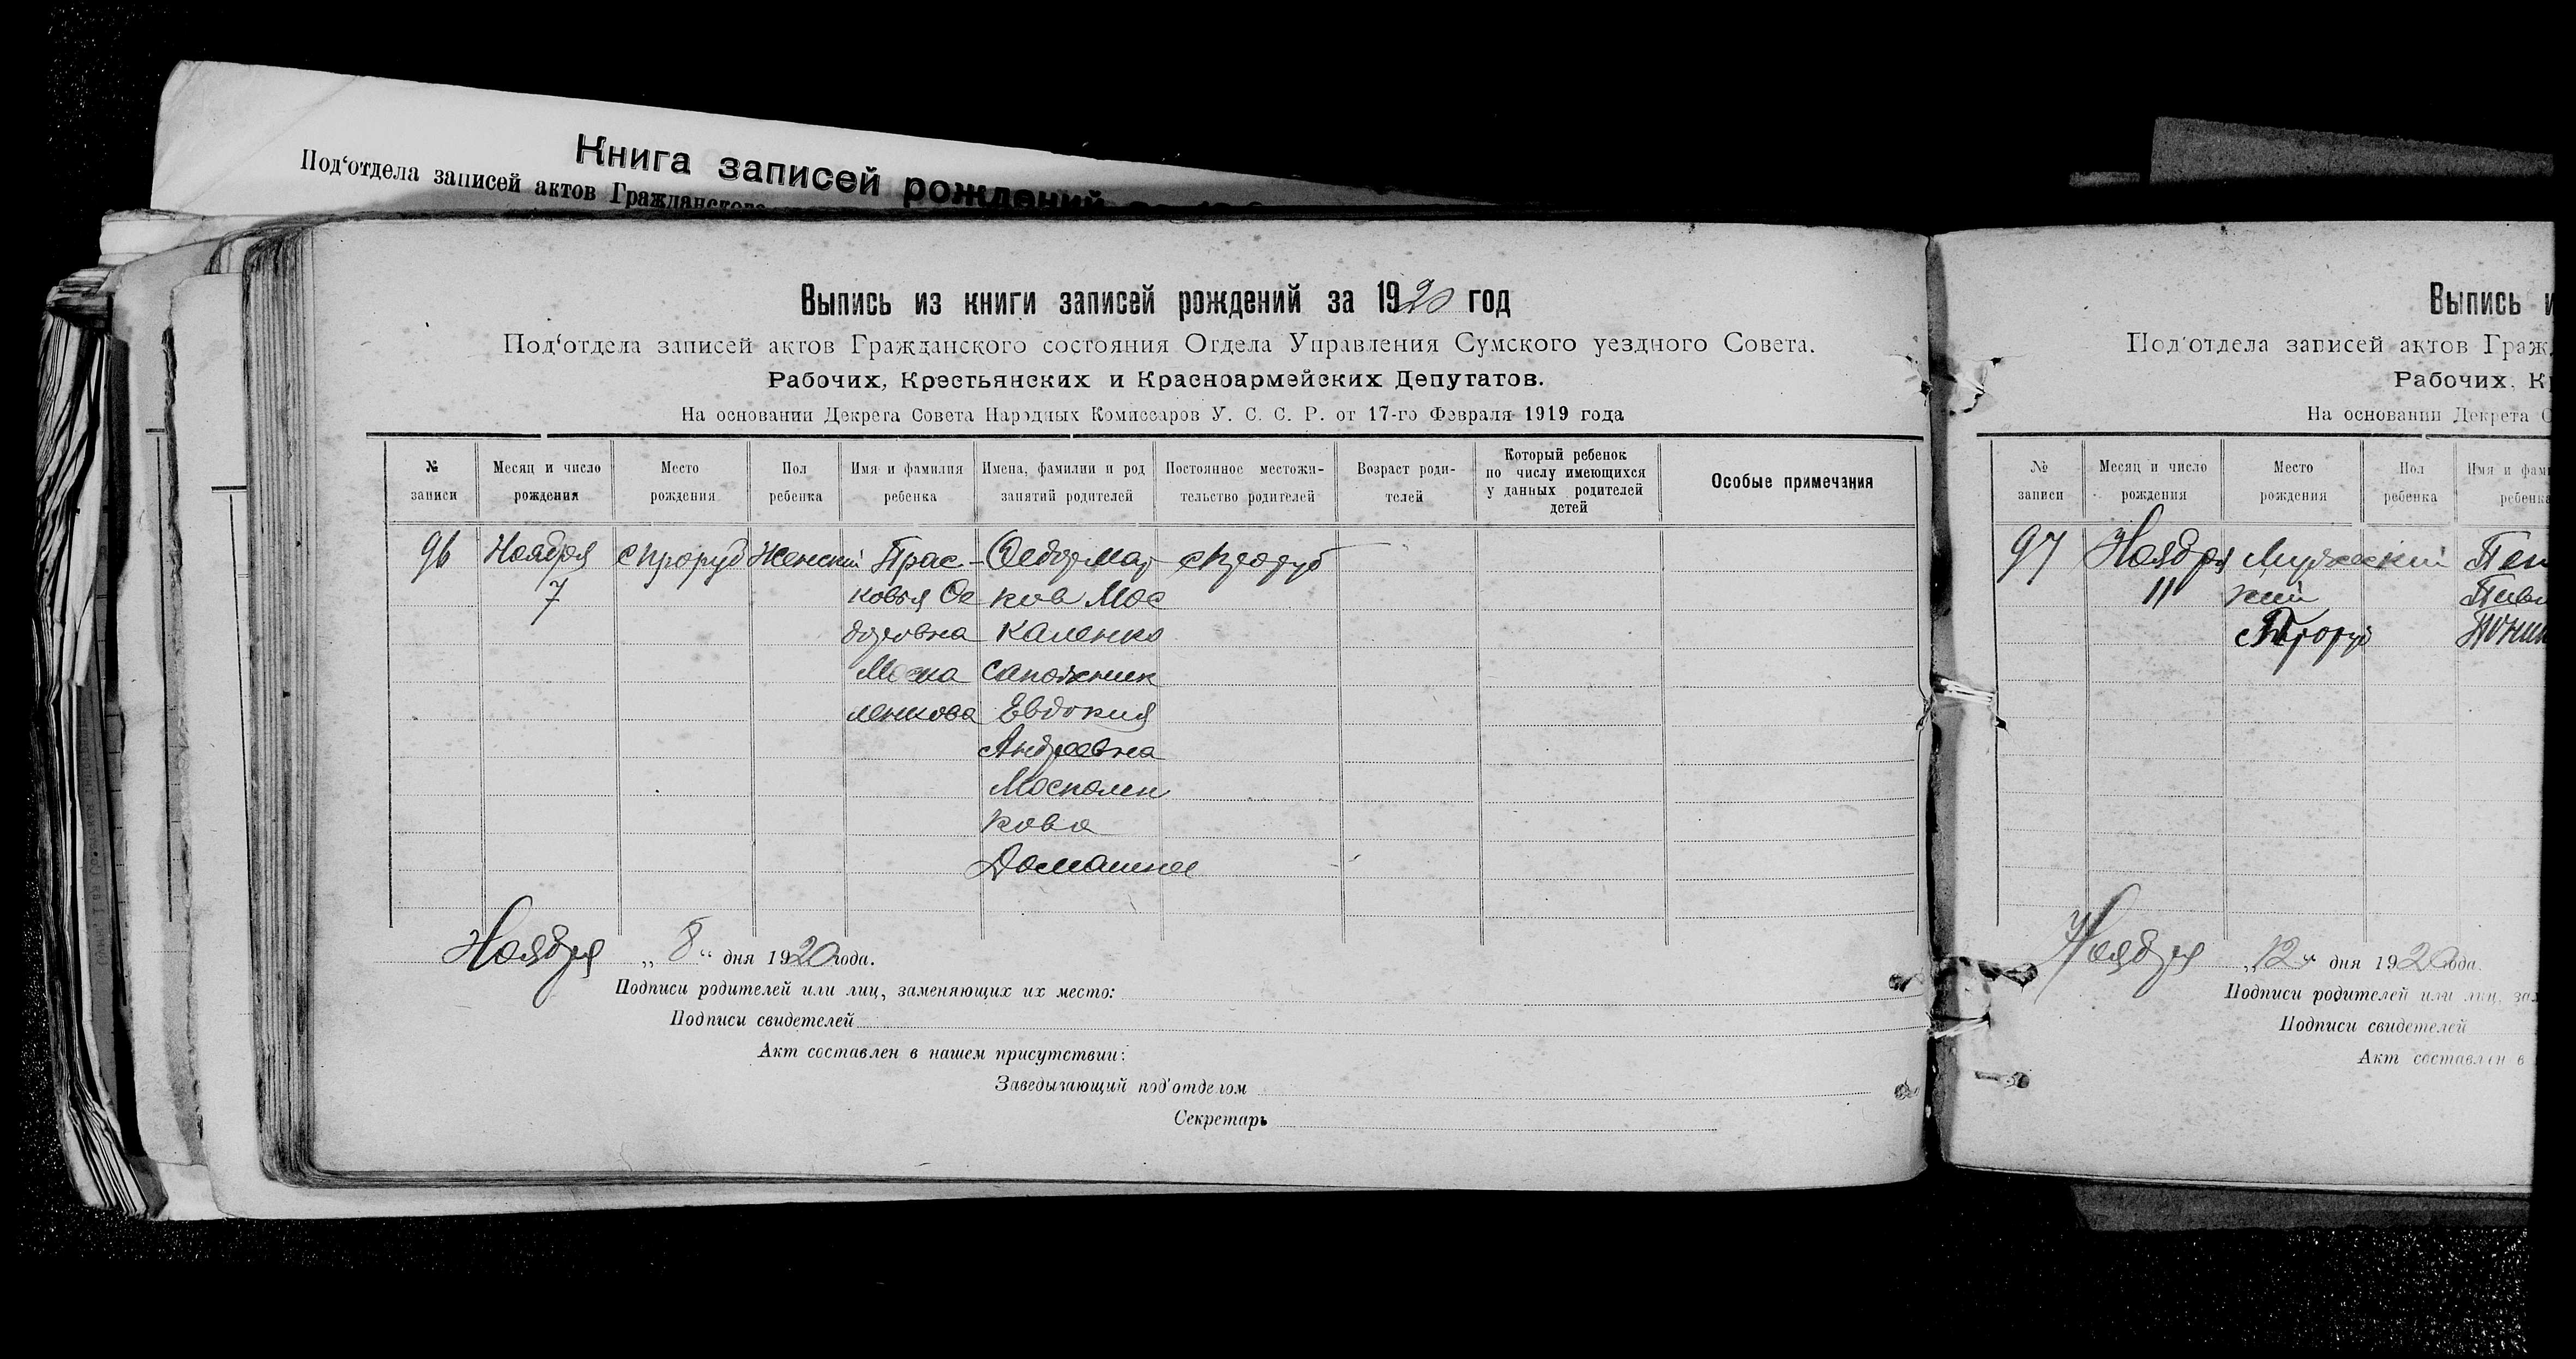 Книга записей рождений
Под‘отдела записей актов Гражданского
Выпись из книги записей рождений за 1920 год
Под‘отдела записей актов Гражданского состояния Отдела Управления Сумского уездного Совета.
Рабочих, Крестьянских и Красноармейских Депутатов.
На основании Декрета Совета Народных Комиссаров У. С. С. Р. от 17-го Февраля 1919 года
№ записи
Месяц и число рождения
Место рождения
Пол ребенка
Имя и фамилия ребенка
Имена, фамилии и род занятий родителей
Постоянное местожи-тельство родителей
Возраст роди-телей
Который ребенок по числу имеющихся у данных родителей детей
Особые примечания
96
Ноября
7
с Проруб
Женский
Прас-
ковья Фе
доровна
Моска
ленкова
Федор Мар
ков Мос
каленко
сапожник
Евдокия
Андреевна
Москален
кова
Домашнее
с Проруб
Ноября „8“ дня 1920 года.
Подписи родителей или лиц, заменяющих их место:
Подписи свидетелей
Акт составлен в нашем присутствии:
Заведывающий под‘отделом
Секретарь
Выпись и
Под‘отдела записей актов Гражд
Рабочих, Кр
На основании Декрета С
№ записи
Месяц и число рождения
Место рождения
Пол ребенка
Имя и фами
ребенка
97
Ноября
11
Мужеский
с Проруб
Ноября „12“ дня 1920 года.
Подписи родителей или лиц, зам
Подписи свидетелей
Акт составлен в